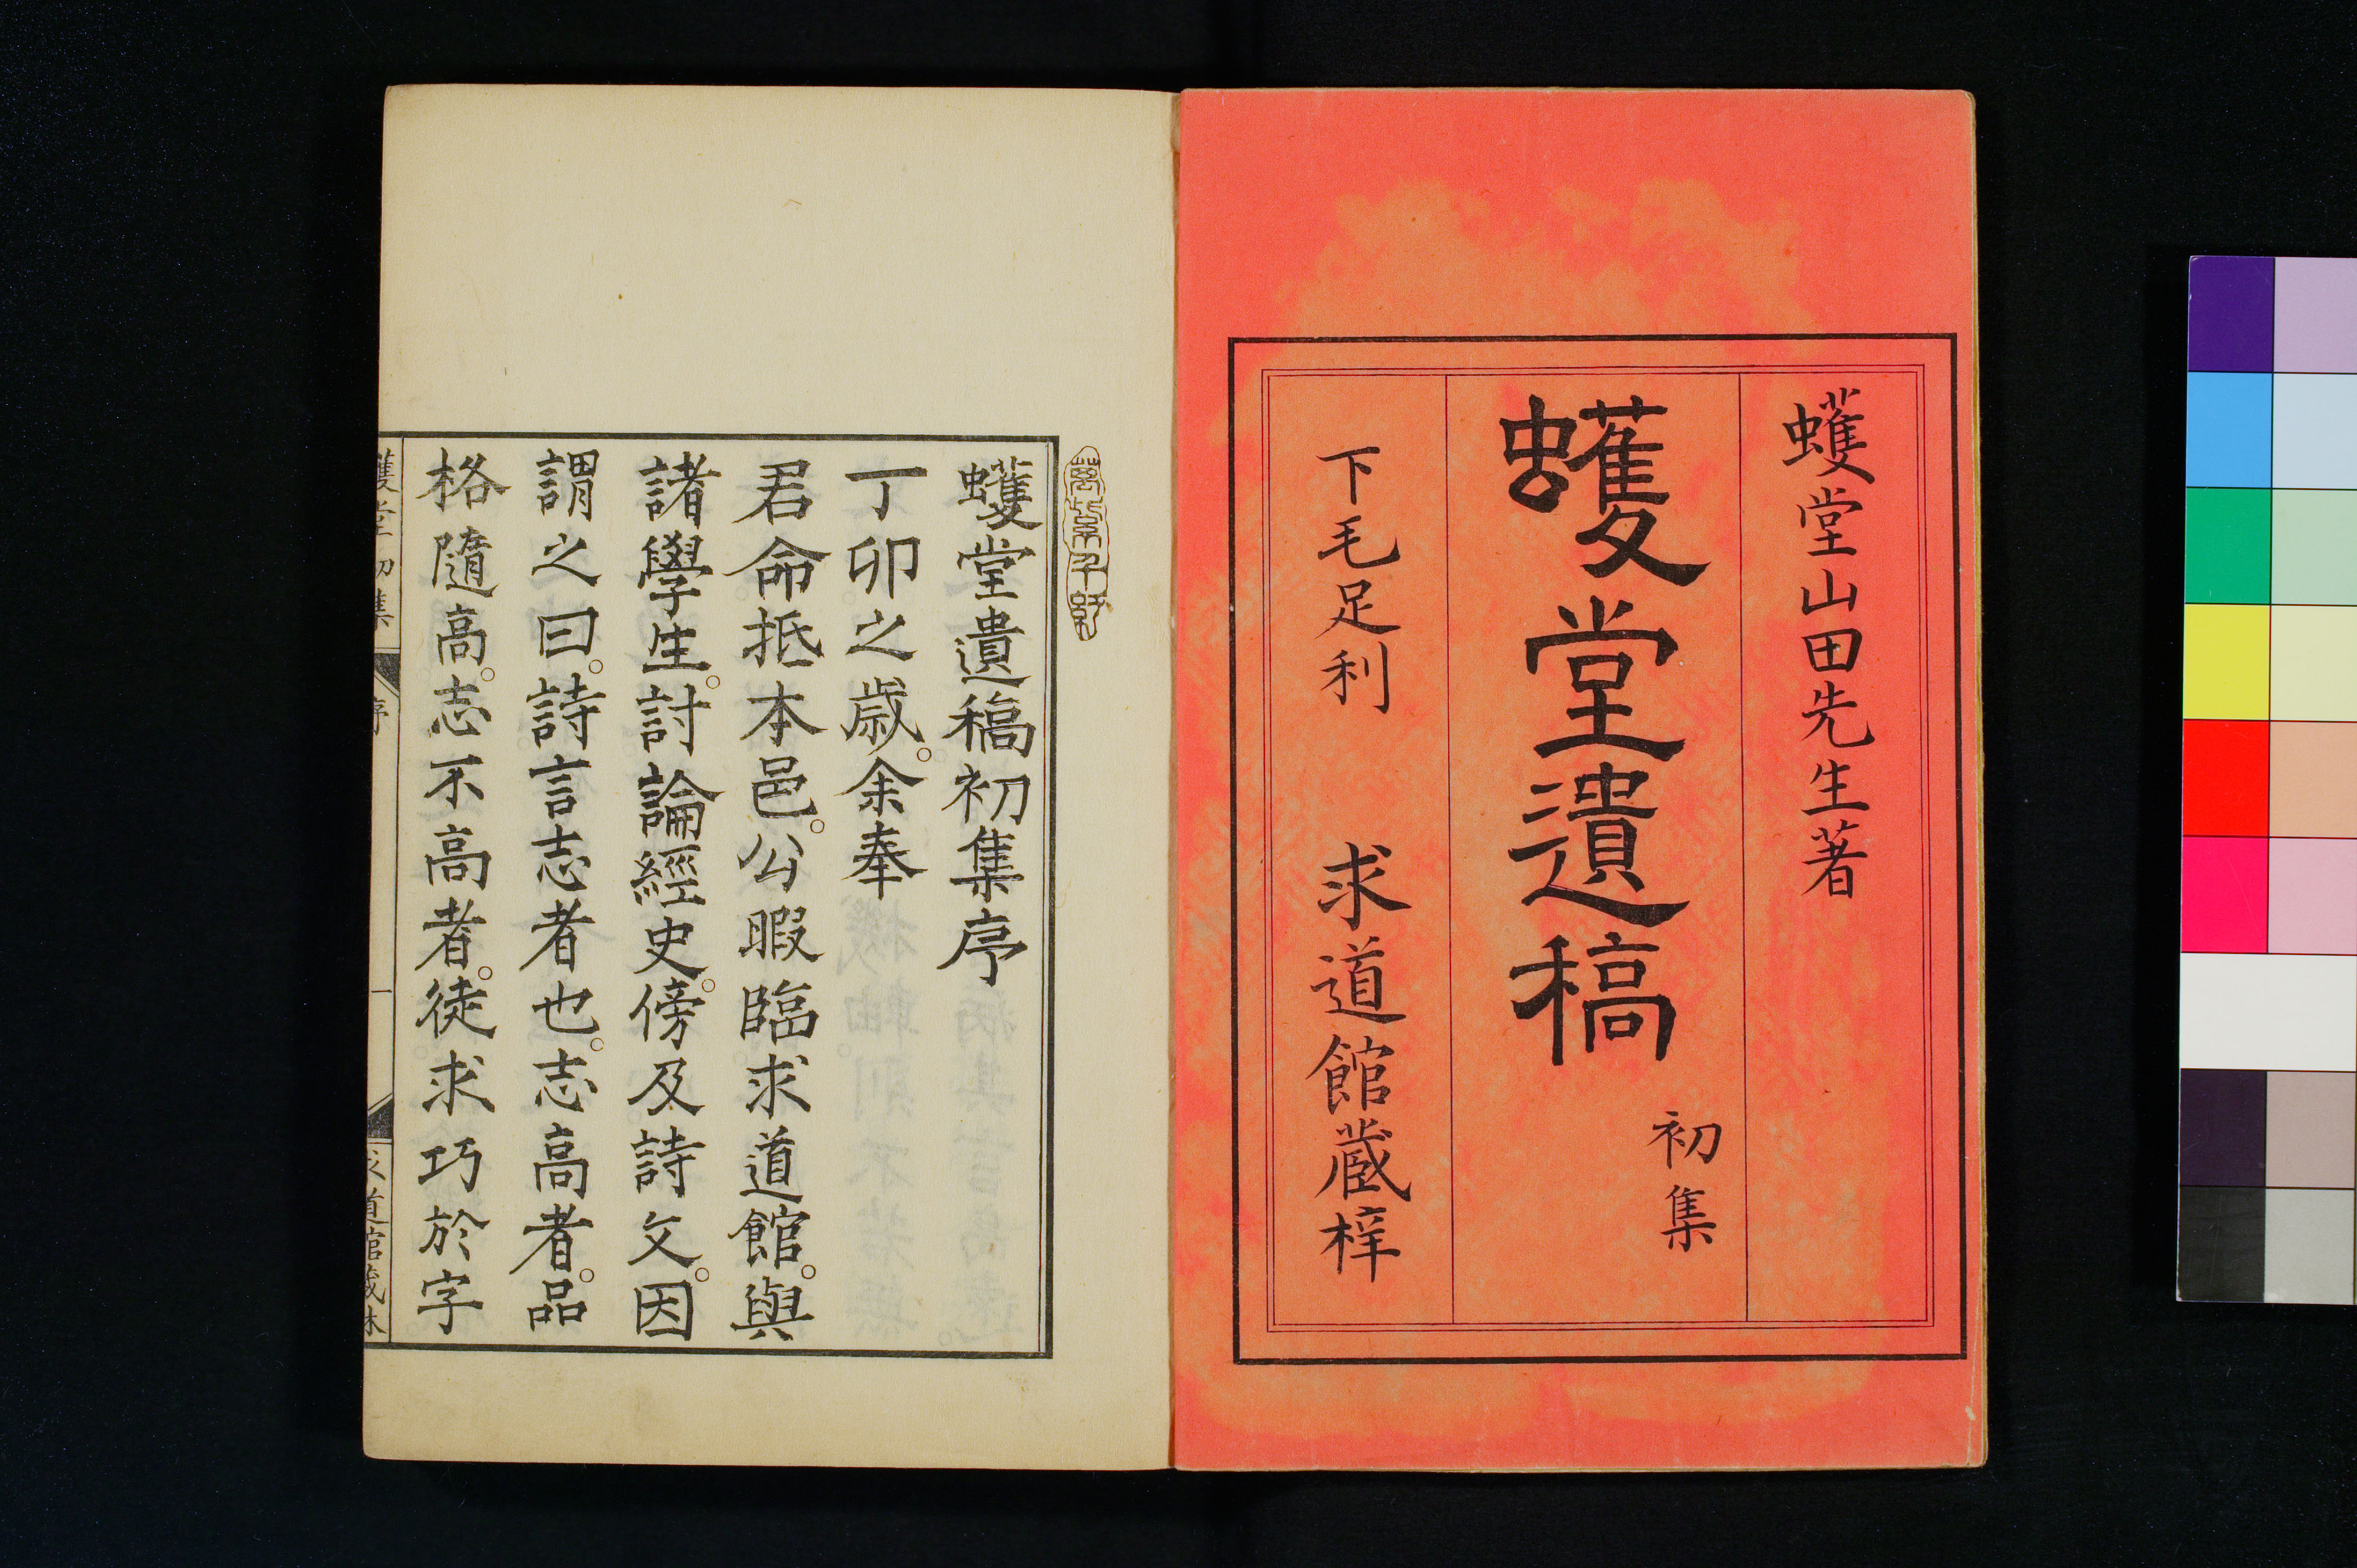 蠖堂山田先生著
蠖堂遺稿
初集
下毛足利　求道館蔵梓
蠖堂遺稿初集序
丁卯之歳。余奉
君命抵本邑。公暇臨求道館。與
諸學生。討論經史。傍及詩文。因
謂之曰。詩言志者也。志高者。品
格隨高。志不高者。徒求巧於字